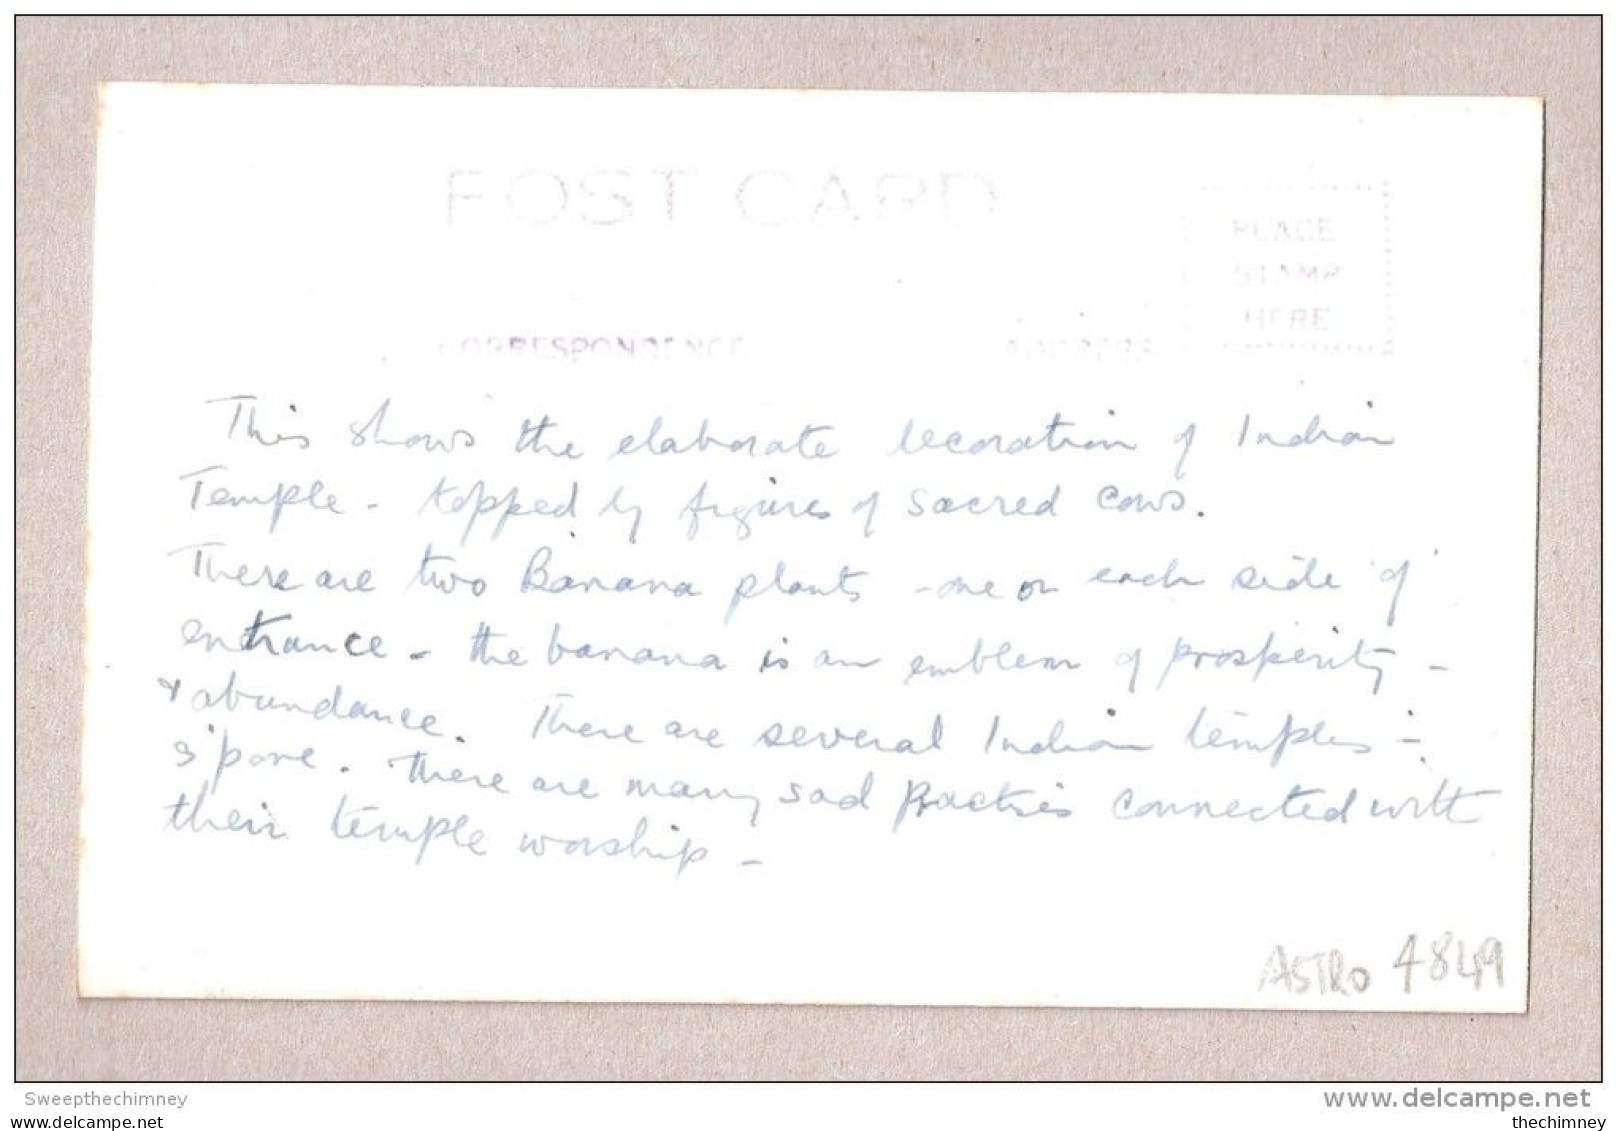 POST CARD
PLACE
STAMP
HERE
CORRESPONDENCE ADDRESS
This shows the elaborate decoration of Indian
Temple - topped by figures of sacred cows.
There are two Banana plants - one on each side of
entrance - the banana is an emblem of prosperity -
& abundance. There are several Indian temples -
S'pore. There are many sad practises connected with
their temple worship -
ASTRO 4849
Sweepthechimney
www.delcampe.net
the chimney
thechimney